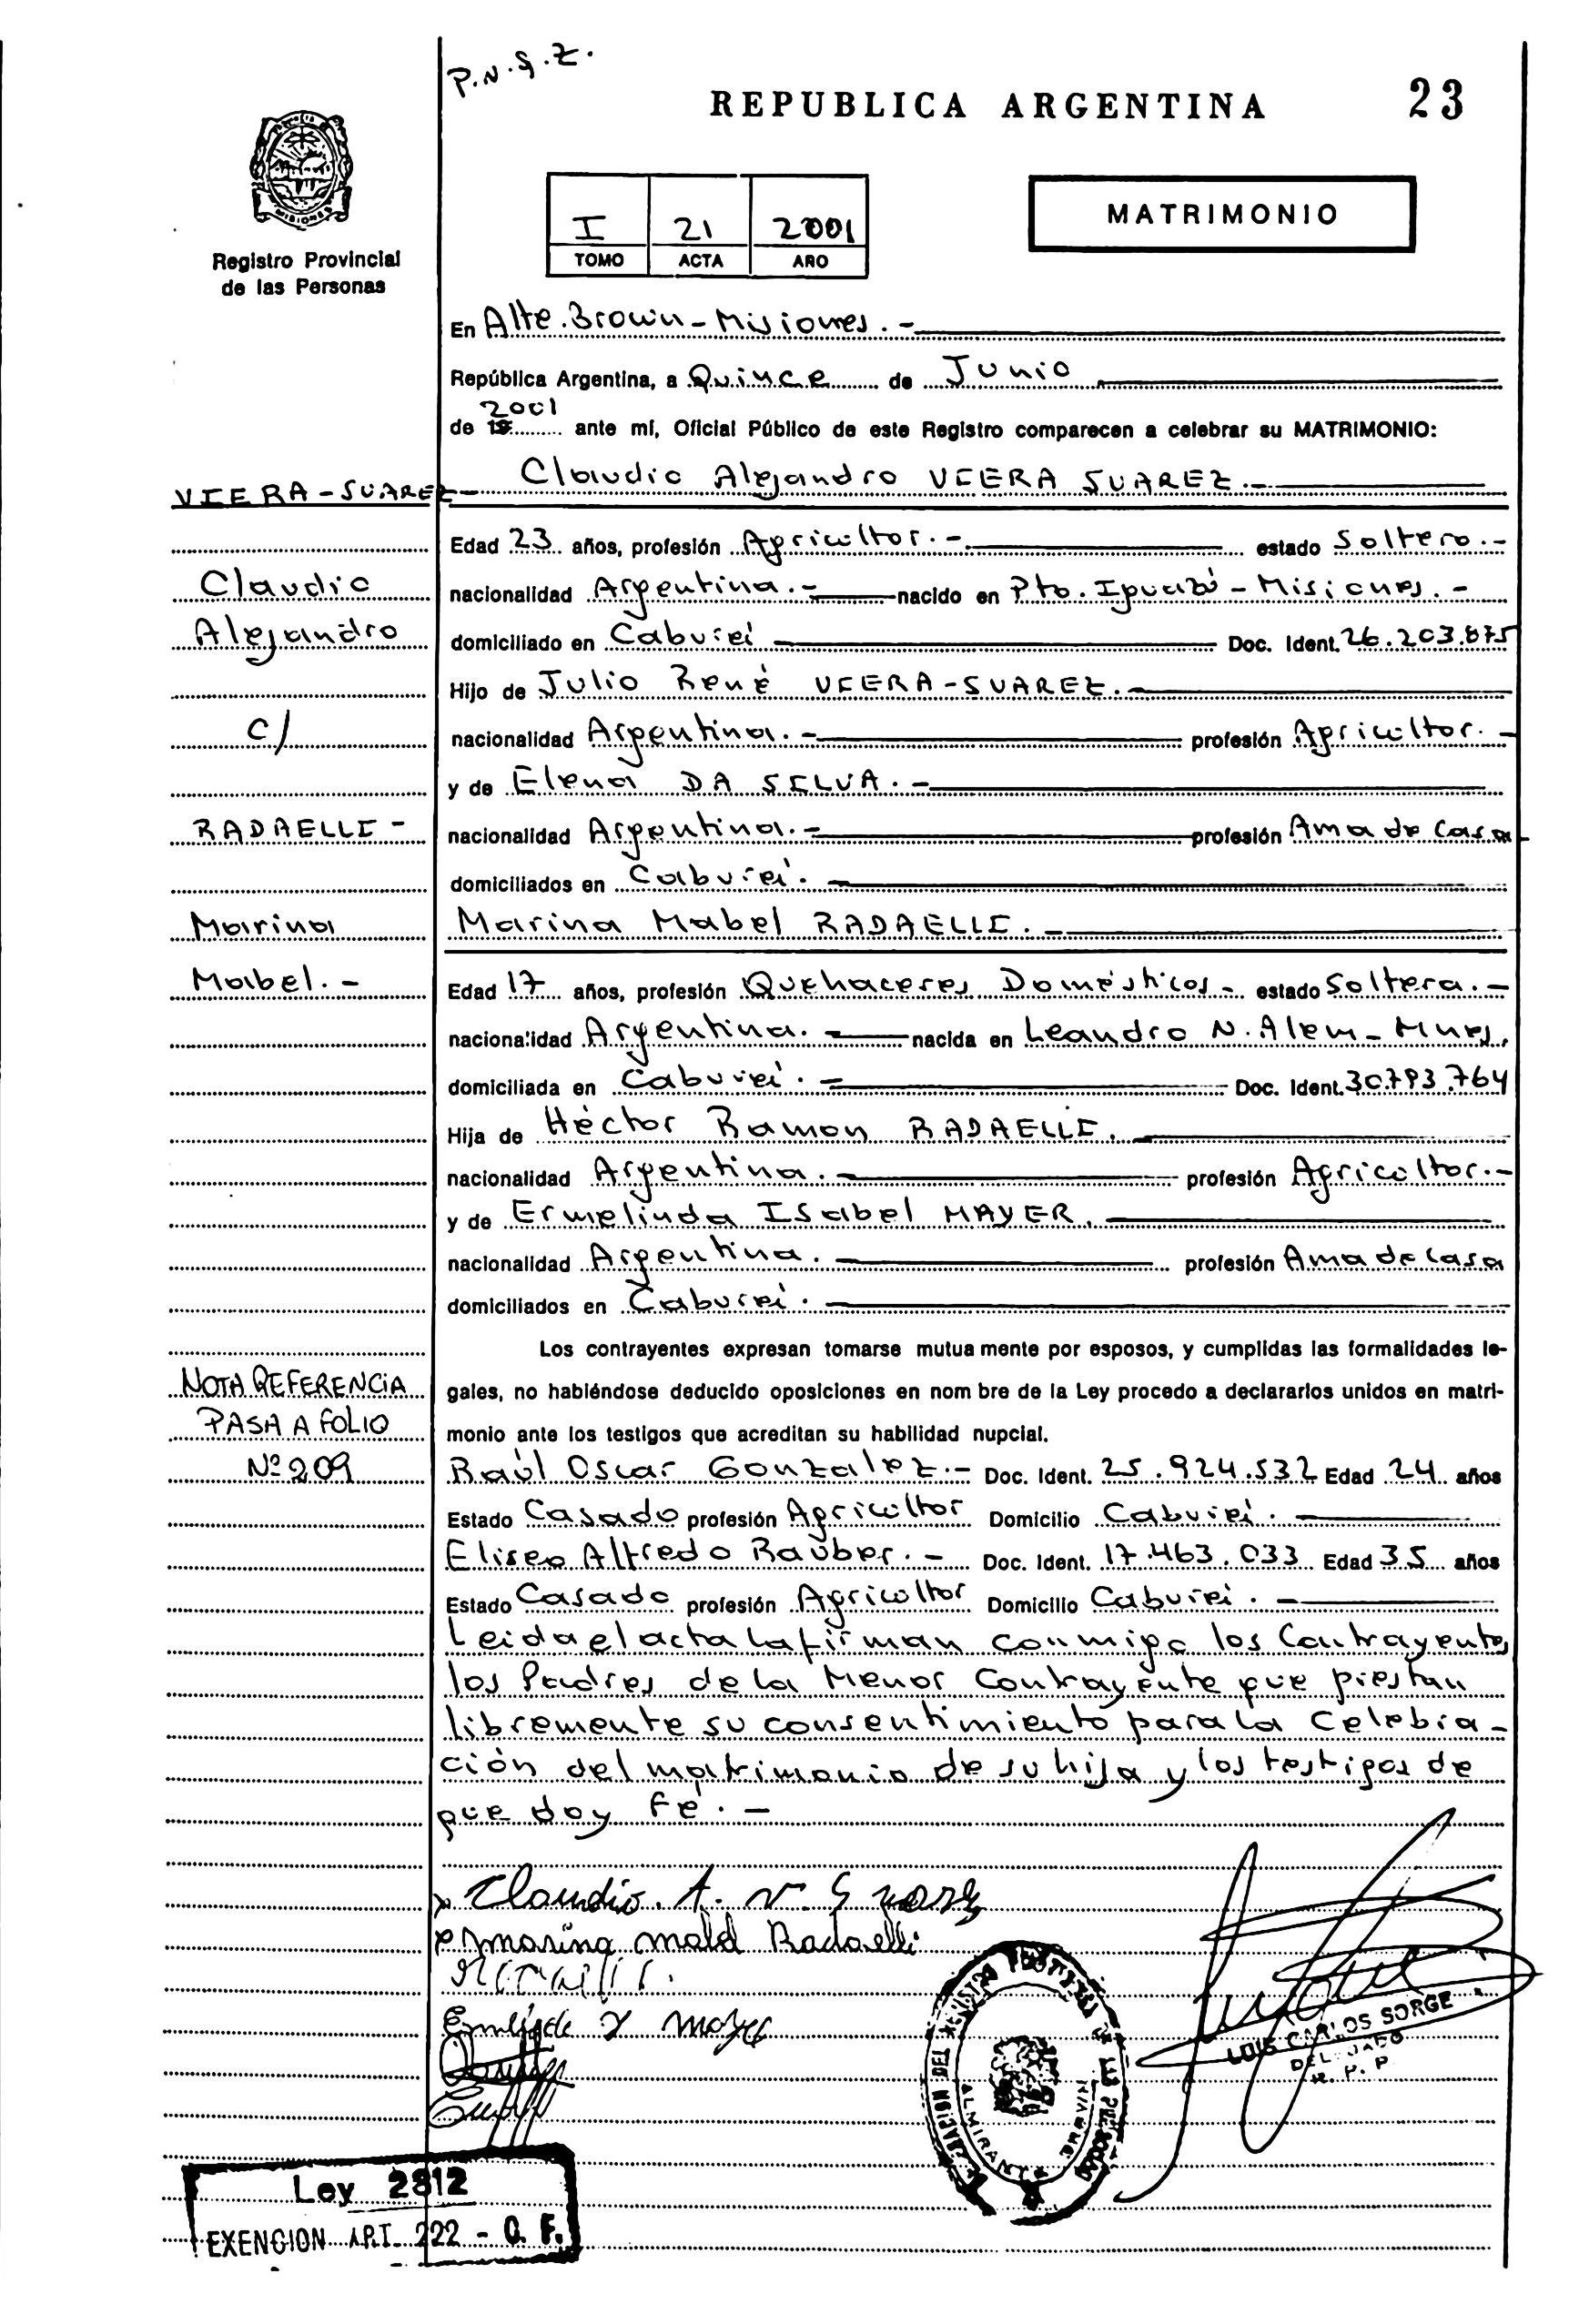 P.N.G.Z.
REPUBLICA ARGENTINA 23
MISIONES
Registro Provincial
de las Personas
I 21 2001
TOMO ACTA AÑO
MATRIMONIO
En Alte. Brown - Misiones. -
República Argentina, a Quince de Junio
2001
de 19 ante mí, Oficial Público de este Registro comparecen a celebrar su MATRIMONIO:
VIERA-SUAREZ- Claudio Alejandro VIERA SUAREZ.-
Edad 23 años, profesión Agricultor.- estado Soltero.-
Claudio nacionalidad Argentina.- nacido en Pto. Iguazú - Misiones.-
Alejandro domiciliado en Caburei Doc. Ident. 26.203.875
Hijo de Julio René VIERA-SUAREZ.
c/ nacionalidad Argentina.- profesión Agricultor.-
y de Elena DA SILVA.-
RADAELLI- nacionalidad Argentina.- profesión Ama de Casa-
domiciliados en Caburei.
Marina Marina Mabel RADAELLI.-
Mabel.- Edad 17 años, profesión Quehaceres Domésticos - estado Soltera.-
nacionalidad Argentina.- nacida en Leandro N. Alem - Mnes.
domiciliada en Caburei.- Doc. Ident. 30.793.764
Hija de Héctor Ramon RADAELLI.
nacionalidad Argentina.- profesión Agricultor.-
y de Ermelinda Isabel MAYER.
nacionalidad Argentina. profesión Ama de Casa
domiciliados en Caburei.
Los contrayentes expresan tomarse mutua mente por esposos, y cumplidas las formalidades le-
NOTA REFERENCIA gales, no habiéndose deducido oposiciones en nom bre de la Ley procedo a declararlos unidos en matri-
PASA A FOLIO monio ante los testigos que acreditan su habilidad nupcial.
Nº 209 Raúl Oscar Gonzalez.- Doc. Ident. 25.924.532 Edad 24 años
Estado Casado profesión Agricultor Domicilio Caburei.
Eliseo Alfredo Rauber.- Doc. Ident. 17.463.033 Edad 35 años
Estado Casado profesión Agricultor Domicilio Caburei.-
Leida el acta la firman conmigo los Contrayentes
los Padres de la Menor Contrayente que prestan
libremente su consentimiento para la Celebra-
ción del matrimonio de su hija y los testigos de
que doy Fé.-
Claudio. A. V. Suarez
marina mabel Radaelli
LUIS CARLOS SORGE
DELEGADO
R. P. P
ALMIRANTE BROWN
Ley 2812
EXENCION ART. 222 - C. F.